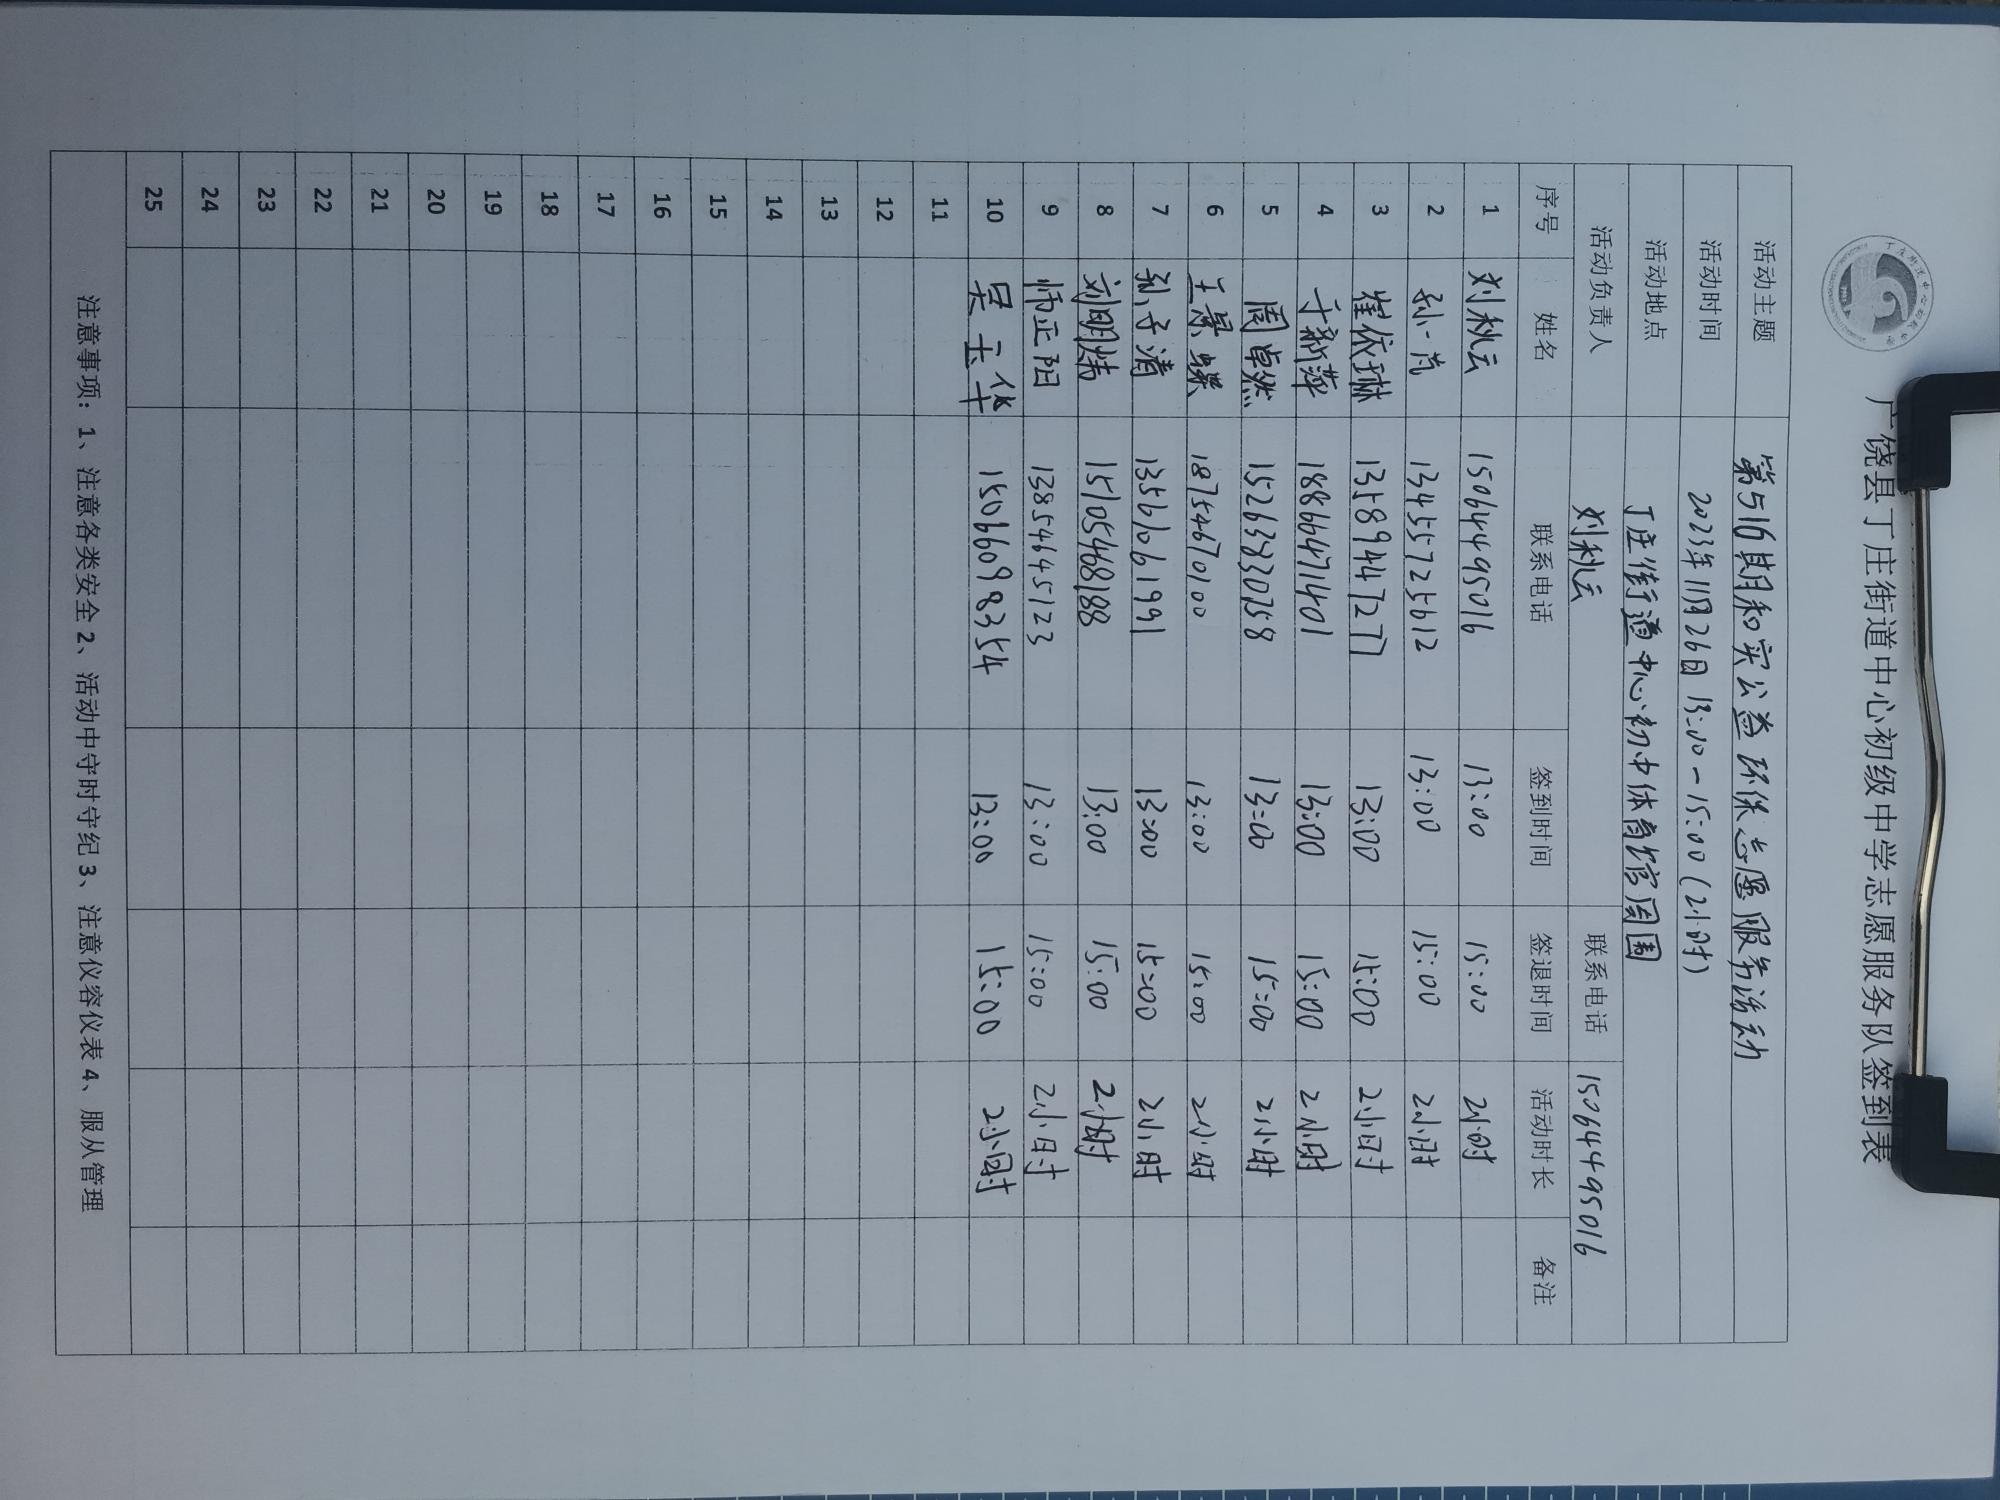 广饶县丁庄街道中心初级中学志愿服务队签到表
活动主题 第516期和实公益环保志愿服务活动
活动时间 2023年11月26日 13:00-15:00(2小时)
活动地点 丁庄街道中心初中体育馆周围
活动负责人 刘秋云 联系电话 15064495016
序号 姓名 联系电话 签到时间 签退时间 活动时长 备注
1 刘秋云 15064495016 13:00 15:00 2小时
2 孙一芃 13455725612 13:00 15:00 2小时
3 崔依琳 13589447277 13:00 15:00 2小时
4 于新萍 18866471401 13:00 15:00 2小时
5 周卓然 15263830758 13:00 15:00 2小时
6 王景蝶 18754670100 13:00 15:00 2小时
7 孙子清 13561061991 13:00 15:00 2小时
8 刘明炜 15105468188 13:00 15:00 2小时
9 师正阳 13854645123 13:00 15:00 2小时
10 吴玉华 15066098354 13:00 15:00 2小时
11
12
13
14
15
16
17
18
19
20
21
22
23
24
25
注意事项:1、注意各类安全 2、活动中守时守纪 3、注意仪容仪表 4、服从管理